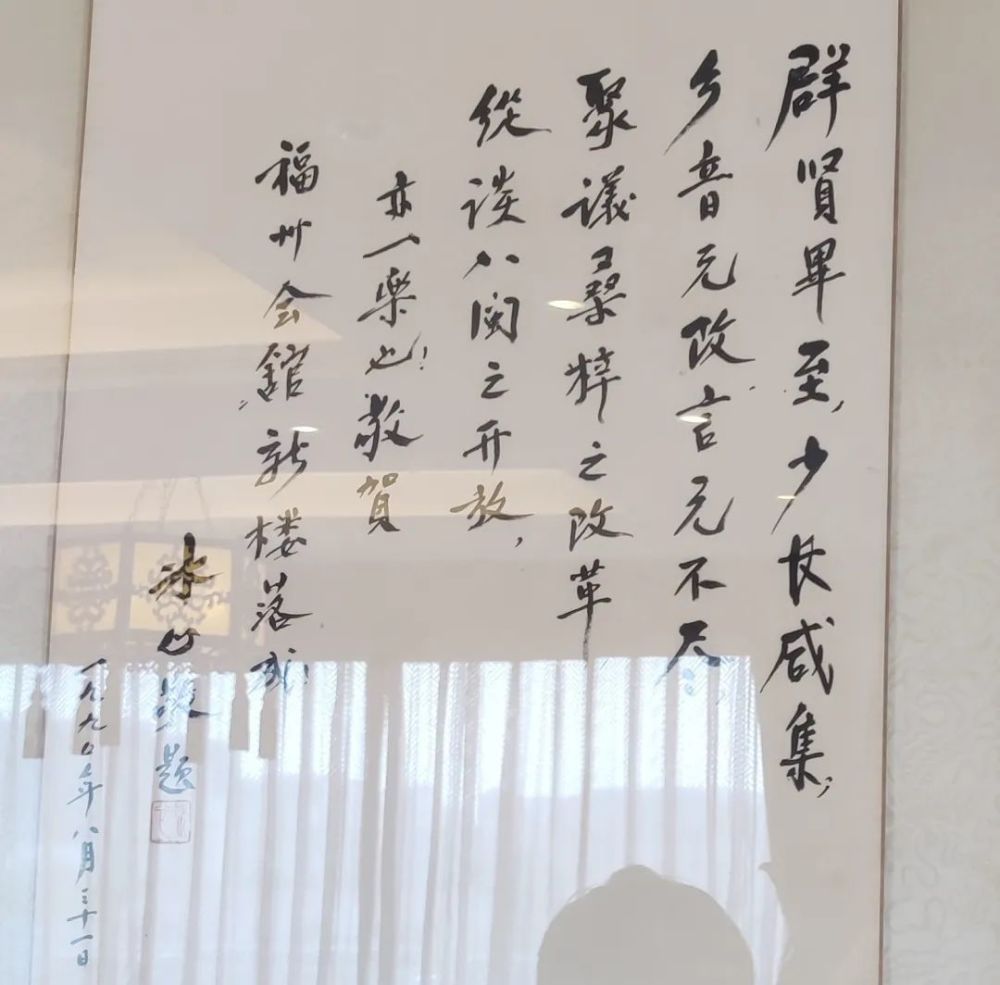 群賢畢至，少长咸集，
乡音无改言无不尽，
聚議桑梓之改革
縱谈八闽之开放，
亦一樂也！敬賀
福州会舘新楼落成！
冰心敬題
一九九〇年八月三十一日